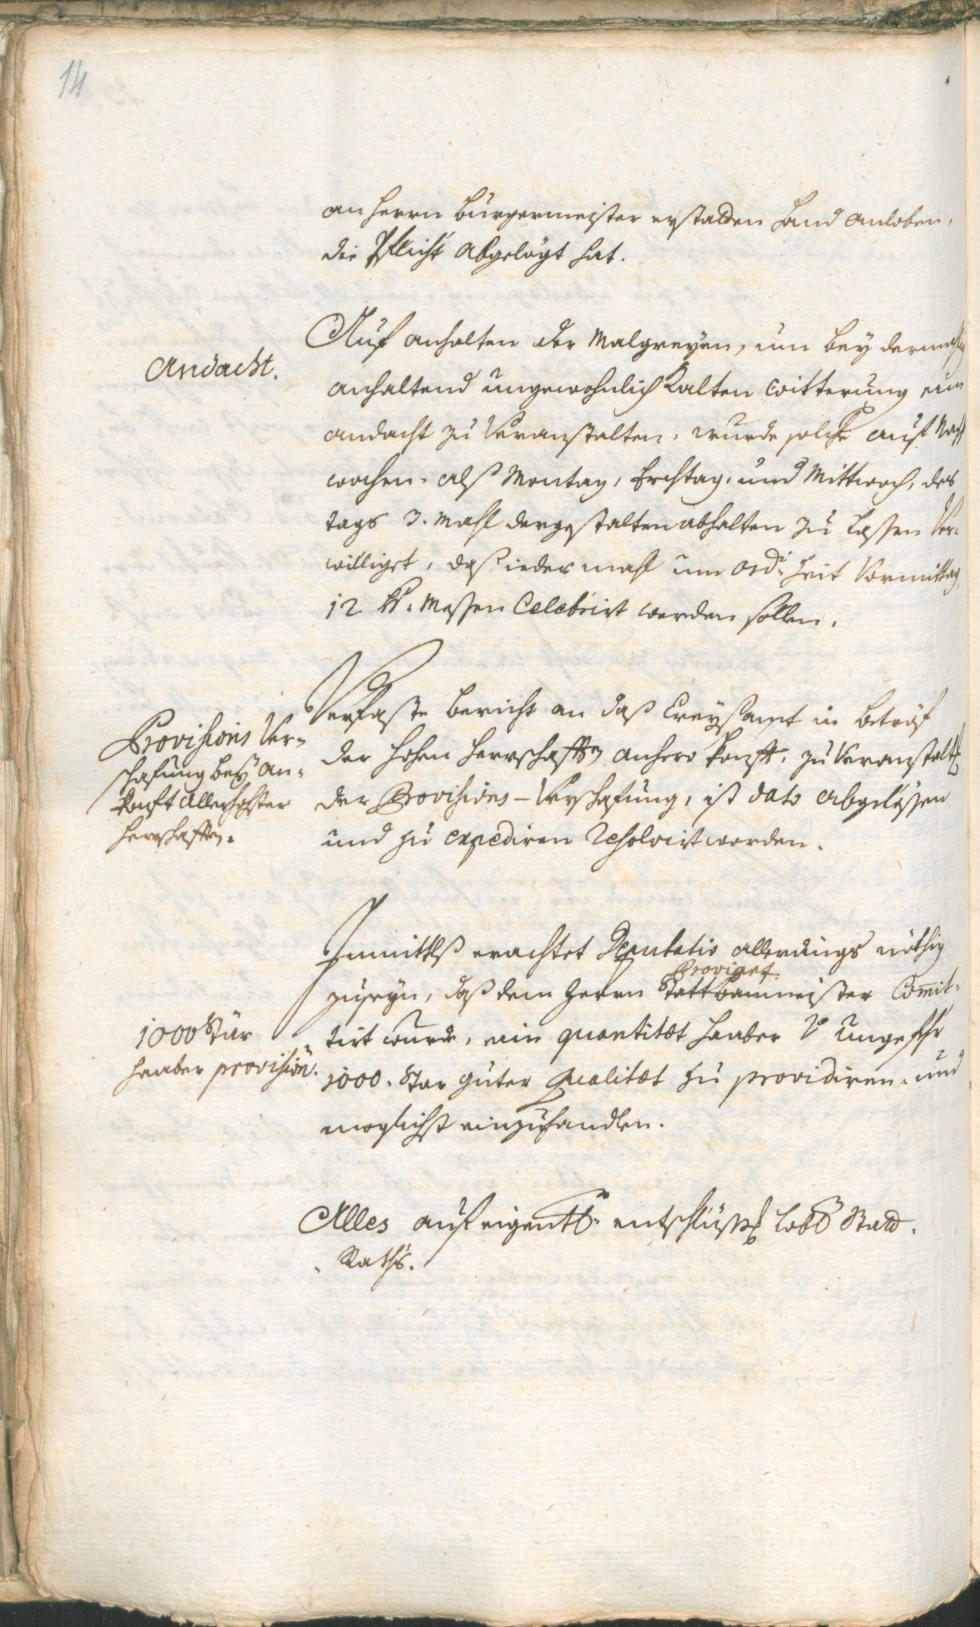 14
an herrn Burgermeister erstatten hand anloben,
die Pflicht abgelögt hat.
Andacht.
Auf anhalten der Malgreyen, um bey dermahlig
anhaltend ungewohnlich Kalten witterung eine
andacht zu veranstalten, wurde solche auf Nach
wochen. alß Montag, Erchtag, und Mittwoch, des
tags 3. mahl dergestalten abhalten zu lassen ver-
williget, daß iedes mahl um ord: Zeit Vormittag.
12 H. Messen Celebrirt werden sollen.
Provisions Ver=
schafung bey an=
kunft Allerhöchster
herrschafften.
Verfaste bericht an daß Creysamt in betröf
der hohen herrschafften anhero kunft, zu veranstalten
der Provisions-Verschafung, ist dato abgelesen
und zu expediren resolvirt worden.
1000 Stär
haaber provision.
Inmittlß erachtet Deputatio allerdings nöthig
Proviant
zuseyn, daß dem herrn Stattbaumeister Commit=
tirt wurde, ein quantitæt haaber V. Ungefehr
1000. Star guter Qualitæt zu providiren. und
moglichst einzuhandlen.
Alles auf eigentl: entschlüssen lobl: Stadt.
Raths.